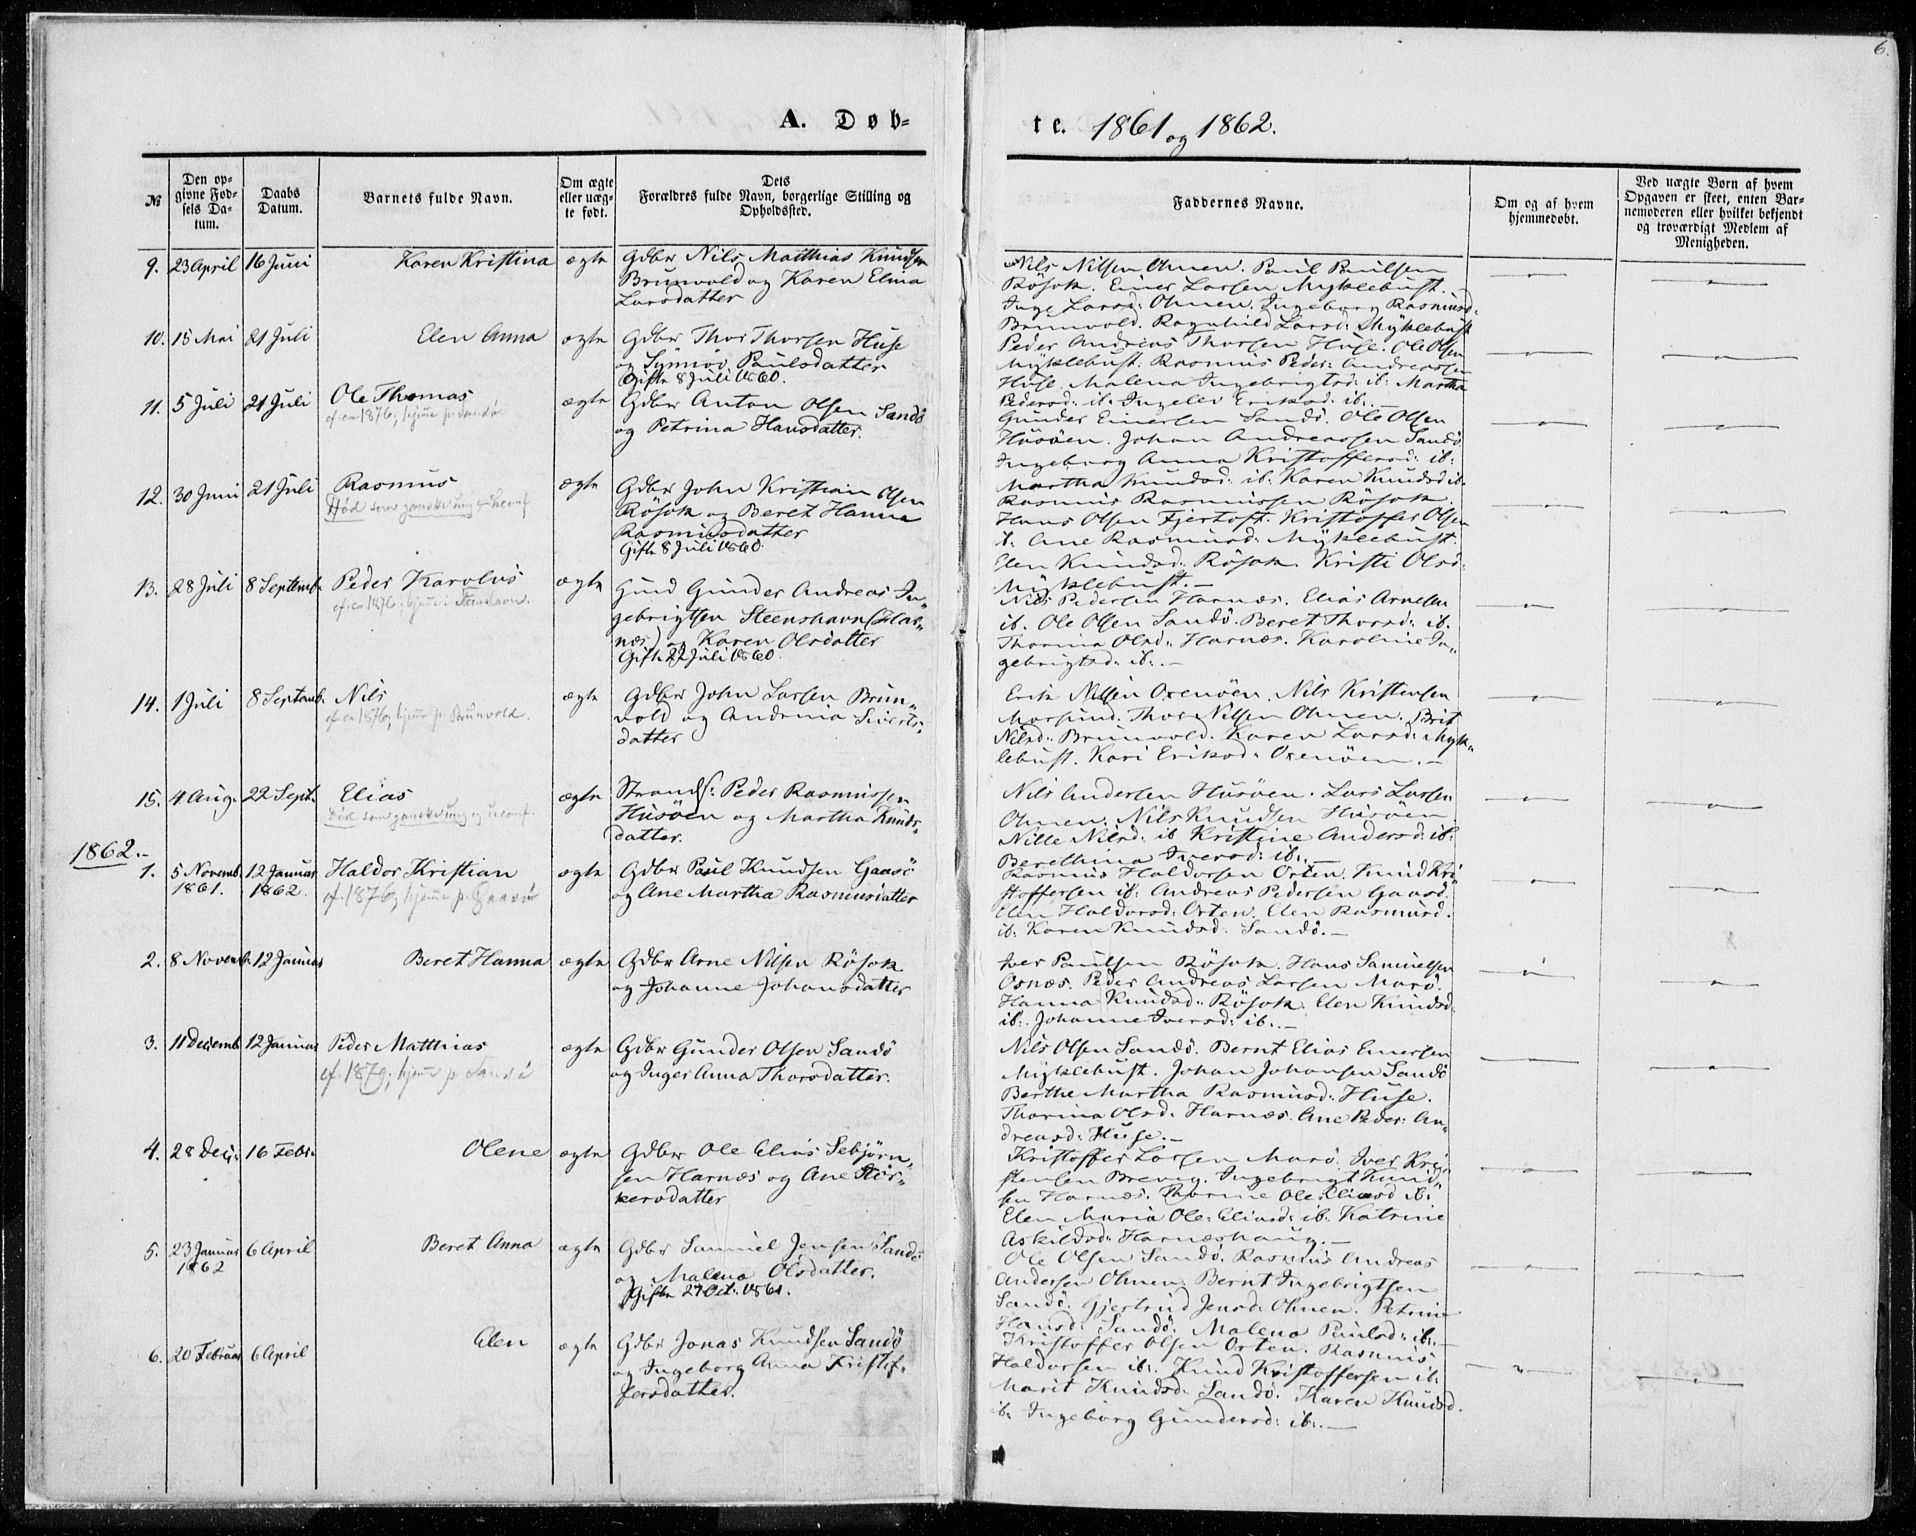 6.
A. Døb-
te. 1861 og 1862.
№
Den op-
givne Fød-
sels Da-
tum.
Daabs
Datum.
Barnets fulde Navn.
Om ægte
eller uæg-
te født.
Dets
Forældres fulde Navn, borgerlige Stilling og
Opholdssted.
Faddernes Navne.
Om og af hvem
hjemmedøbt.
Ved uægte Børn af hvem
Opgaven er skeet, enten Bar-
nemoderen eller hvilket bekjendt
og troværdigt Medlem af
Menigheden.
9. 23 April 16 Juni Karen Kristina ægte Gdbr Nils Matthias Knudsen
Brunvold og Karen Elina
Larsdatter
Nils Nilsen Ohnen. Paul Paulsen
Rösok. Einer Larsen Myklebust.
Inge Larsd: Ohnen. Ingeborg Rasmusd:
Brunvold. Ragnhild Larsd: Myklebust
10. 15 Mai 21 Juli Elen Anna ægte Gdbr Thor Thorsen Huse
og Synnöv Paulsdatter
Gifte 8 Juli 1860.
Peder Andreas Thorsen Huse. Ole Olsen
Myklebust. Rasmus Peder Andreassen
Huse. Malena Ingebrigtsd: ib: Martha
Pedersd: ib. Ingelev Eriksd: ib:.—
11. 5 Juli 21 Juli Ole Thomas ægte Gdbr Anton Olsen Sandö
cf. en 1876, hjem p. Sandö
og Petrina Hansdatter.
Gunder Einersen Sandö. Ole Olsen
Husöen. Johan Andreassen Sandö
Ingeborg Anna Kristoffersd: ib:
Martha Knudsd: ib: Karen Knudsd ib.
12. 30 Juni 21 Juli Rasmus ægte Gdbr John Kristian Olsen
Död som ganske ung
Rösok og Beret Hanna
Rasmusdatter
Gifte 8 Juli 1860.
Rasmus Rasmussen Rösok.
Hans Olsen Fjertoft. Kristoffer Olsen
ib. Ane Rasmusd: Myklebust.
Elen Knudsd: Rösok. Kristi Olsd:
Myklebust.—
13. 28 Juli 8 Septemb. Peder Karolus ægte Gund Gunder Andreas In-
cf. en 1876; hjem i Stenshavn.
gebrigtsen Steenshavn (Har-
næs) og Karen Olsdatter
Gifte 22 Juli 1860.
Nils Pedersen Harnæs. Elias Arnesen
ib. Ole Olsen Sandö. Beret Thorsd: ib.
Thorina Olsd: Harnæs. Karoline In-
gebrigtsd: ib:.—
14. 1 Juli 8 Septemb. Nils ægte Gdbr John Larsen Brun-
cf. en 1876; hjem p. Brunvold.
vold og Andrina Siverts-
datter
Erik Nilsen Oxenöen. Nils Kristensen
Morsund. Thor Nilsen Ohnen. Brit
Nilsd: Brunvold. Karen Larsd: Myk-
lebust. Kari Eriksd: Oxenöen.—
15. 4 Aug. 22 Sept. Elias ægte Strands: Peder Rasmussen
Död som ganske ung
Husöen og Martha Knuds-
datter.
Nils Andersen Husöen. Lars Larsen
Ohnen. Nils Knudsen Husöen.
Nille Nilsd: ib Kristine Andersd: ib:
Berethina Iversd: ib:.—
1862.—
1. 5 Novemb. 1861. 12 Januar 1862. Haldor Kristian ægte Gdbr Paul Knudsen Gaasö
cf. 1876, hjem p. Gaasö
og Ane Martha Rasmusdatter
Rasmus Haldorsen Orten. Knud Kri-
stoffersen ib: Andreas Pedersen Gaasö.
Elen Haldorsd: Orten. Elen Rasmusd.
ib: Karen Knudsd: Sandö.—
2. 8 Novemb. 12 Januar Beret Hanna ægte Gdbr Arne Nilsen Rösok
og Johanne Johansdatter
Iver Paulsen Rösok. Hans Samuelsen
Osnæs. Peder Andreas Larsen Marö.
Hanna Knudsd: Rösok. Elen Knudsd.
ib:. Johanne Iversd: ib:.—
3. 11 Decemb. 12 Januar Peder Matthias ægte Gdbr Gunder Olsen Sandö
cf. 1879, hjem p. Sandö
og Inger Anna Thorsdatter.
Nils Olsen Sandö. Bernt Elias Einersen
Myklebust. Johan Johansen Sandö
Berthe Martha Rasmusd: Huse.
Thorina Olsd: Harnæs. Ane Peder An-
dreasd: Huse.—
4. 28 Dec: 16 Febr. Olene ægte Gdbr Ole Elias Sebjörn-
sen Harnæs og Ane Stör-
kersdatter
Kristoffer Larsen Marö. Iver Kri-
stensen Brevig. Ingebrigt Knud-
sen Harnæs. Thorine Ole Eliasd ib:
Elen Maria Ole: Eliasd: ib. Katrine
Askildsd: Harneshaug.—
5. 23 Januar 1862 6 April Beret Anna ægte Gdbr Samuel Jensen Sandö
og Malena Olsdatter.
Gifte 27 Oct. 1861.
Ole Olsen Sandö. Rasmus Andreas
Andersen Ohnen. Bernt Ingebrigtsen
Sandö. Gjertrud Jensd: Ohnen. Petrine
Hansd: Sandö. Malena Paulsd: ib:.—
6. 20 Februar 6 April Elen ægte Gdbr Jonas Knudsen Sandö
og Ingeborg Anna Kristof-
fersdatter.
Kristoffer Olsen Orten. Rasmus
Haldorsen ib:. Knud Kristoffersen ib:
Marit Knudsd: Sandö. Karen Knudsd.
ib. Ingeborg Gundersd: ib:.—